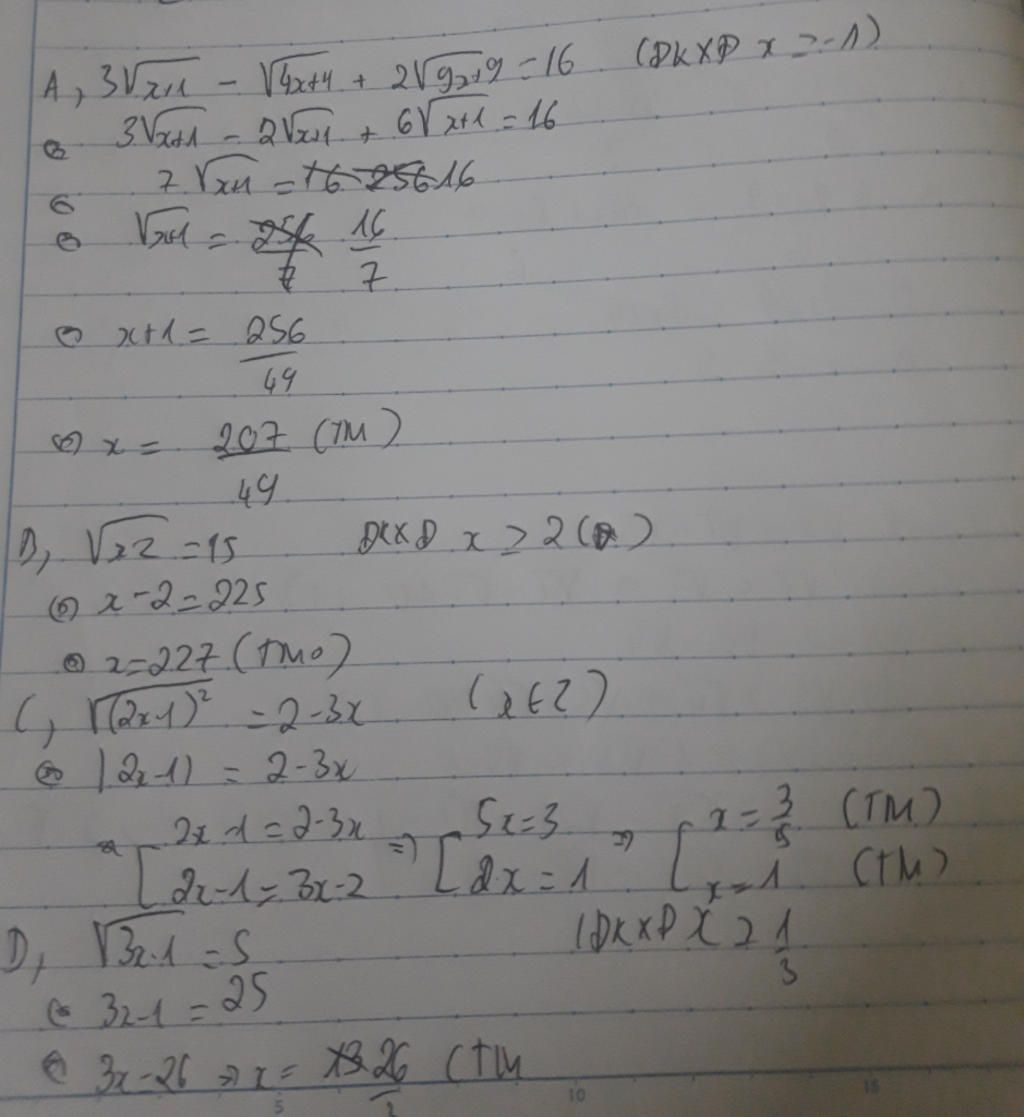 A, 3√x+1 - √4x+4 + 2√9x+9 = 16 (ĐKXĐ x ≥ -1)
⇔ 3√x+1 - 2√x+1 + 6√x+1 = 16
⇔ 7√x+1 = 16 256 16
⇔ √x+1 = 256/7 16/7
⇔ x+1 = 256/49
⇔ x = 207/49 (TM)
B, √x-2 = 15 ĐKXĐ x ≥ 2
⇔ x-2 = 225
⇔ x = 227 (TM)
C, √(2x-1)² = 2-3x (x ∈ Z)
⇔ |2x-1| = 2-3x
⇔ [ 2x-1 = 2-3x ⇒ [ 5x = 3 ⇒ [ x = 3/5 (TM)
2x-1 = 3x-2 2x = 1 x = 1 (TM)
D, √3x-1 = 5 (ĐKXĐ x ≥ 1/3
⇔ 3x-1 = 25
⇔ 3x-26 ⇒ x = 26/3 (TM